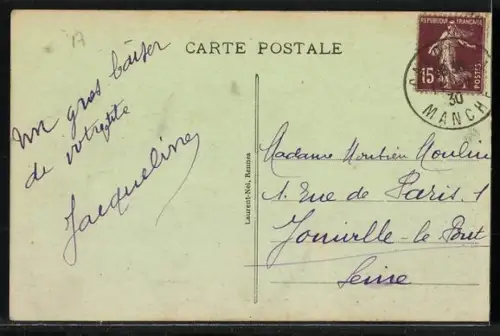 17
CARTE POSTALE
REPUBLIQUE FRANÇAISE
15
POSTES
30
MANCHE
Un gros baiser
de votre ptite
Jacqueline
Laurent-Nel, Rennes
Madame Moulin
1. Rue de Paris. 1
Joinville-le Pont
Seine